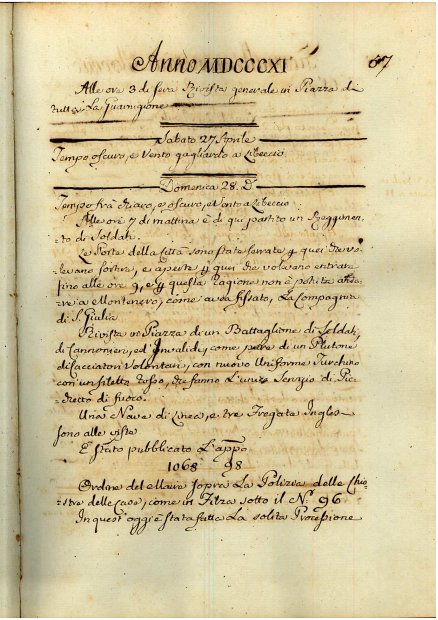 Anno MDCCCXI
67
Alle ore 3 di sera Rivista generale in Piazza di
tutta La Guarnigione
Sabato 27 Aprile
Tempo oscuro, e Vento gagliardo a Libeccio
Domenica 28. D.
Tempo frà chiaro, e oscuro, e Vento a Libeccio
Alle ore 7 di mattina è di qui partito un Reggimen=
to di Soldati
Le Porte della Città sono state serrate p quei che vo=
levano sortire, e aperte p quei che volevano entrare
fino alle ore 9, e p questa Ragione non è potuta anda=
re a Montenero, come aveva fissato, La Compagnia
di S. Giulia
Rivista in Piazza di un Battaglione di Soldati,
di Cannonieri, ed Invalidi, come pure di un Plutone
di Cacciatori Volontari, con nuovo Uniforme Turchino
con un filetto rosso, che fanno L'unito Servizio di Pic=
chetto di fuoco.
Una Nave di Linea, e tre Fregate Ingle=
si sono alle viste
È stato pubblicato L'app.o
1068 98
Ordine del Maire sopra La Polizia delle
delle case, come in Filza sotto il N.o 96
In quest'oggi è stata fatta La solita Processione